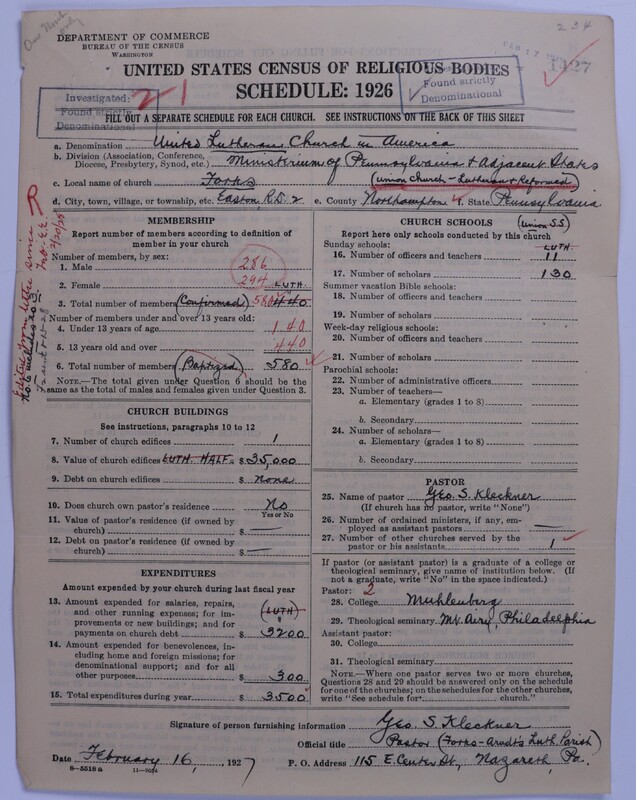 234
DEPARTMENT OF COMMERCE
BUREAU OF THE CENSUS
WASHINGTON
FEB 17
1427
UNITED STATES CENSUS OF RELIGIOUS BODIES
SCHEDULE: 1926
Investigated:
Found strictly
Denominational
2-1
Found strictly
Denominational
FILL OUT A SEPARATE SCHEDULE FOR EACH CHURCH. SEE INSTRUCTIONS ON THE BACK OF THIS SHEET
a. Denomination United Lutheran Church in America
b. Division (Association, Conference, Diocese, Presbytery, Synod, etc.) Ministerium of Pennsylvania & Adjacent States
c. Local name of church Forks (Union Church - Lutheran & Reformed)
d. City, town, village, or township, etc. Easton R.D. 2 e. County Northampton f. State Pennsylvania
MEMBERSHIP
Report number of members according to definition of member in your church
Number of members, by sex:
1. Male 286
2. Female 294 LUTH.
3. Total number of members (Confirmed) 580 440
Number of members under and over 13 years old:
4. Under 13 years of age 140
5. 13 years old and over 440
6. Total number of members (Baptized) 580
NOTE.—The total given under Question 6 should be the same as the total of males and females given under Question 3.
CHURCH BUILDINGS
See instructions, paragraphs 10 to 12
7. Number of church edifices 1
8. Value of church edifices LUTH. HALF. $35,000
9. Debt on church edifices $ None
10. Does church own pastor's residence No
Yes or No
11. Value of pastor's residence (if owned by church) $ —
12. Debt on pastor's residence (if owned by church) $ —
EXPENDITURES
Amount expended by your church during last fiscal year
13. Amount expended for salaries, repairs, and other running expenses; for improvements or new buildings; and for payments on church debt (LUTH) $ 3200
14. Amount expended for benevolences, including home and foreign missions; for denominational support; and for all other purposes $ 300
15. Total expenditures during year $ 3500
CHURCH SCHOOLS (Union S.S)
Report here only schools conducted by this church
Sunday schools: LUTH.
16. Number of officers and teachers 11
17. Number of scholars 130
Summer vacation Bible schools:
18. Number of officers and teachers
19. Number of scholars
Week-day religious schools:
20. Number of officers and teachers
21. Number of scholars
Parochial schools:
22. Number of administrative officers
23. Number of teachers—
a. Elementary (grades 1 to 8)
b. Secondary
24. Number of scholars—
a. Elementary (grades 1 to 8)
b. Secondary
PASTOR
25. Name of pastor Geo. S. Kleckner
(If church has no pastor, write "None")
26. Number of ordained ministers, if any, employed as assistant pastors —
27. Number of other churches served by the pastor or his assistants 1
If pastor (or assistant pastor) is a graduate of a college or theological seminary, give name of institution below. (If not a graduate, write "No" in the space indicated.)
Pastor: 2
28. College Muhlenberg
29. Theological seminary Mt. Airy, Philadelphia
Assistant pastor:
30. College
31. Theological seminary
NOTE.—Where one pastor serves two or more churches, Questions 28 and 29 should be answered only on the schedule for one of the churches; on the schedules for the other churches, write "See schedule for church."
Signature of person furnishing information Geo. S. Kleckner
Official title Pastor (Forks-Arndt's Luth. Parish)
Date February 16, 1927 P. O. Address 115 E. Center St., Nazareth, Pa.
8—5518 a 11—9024